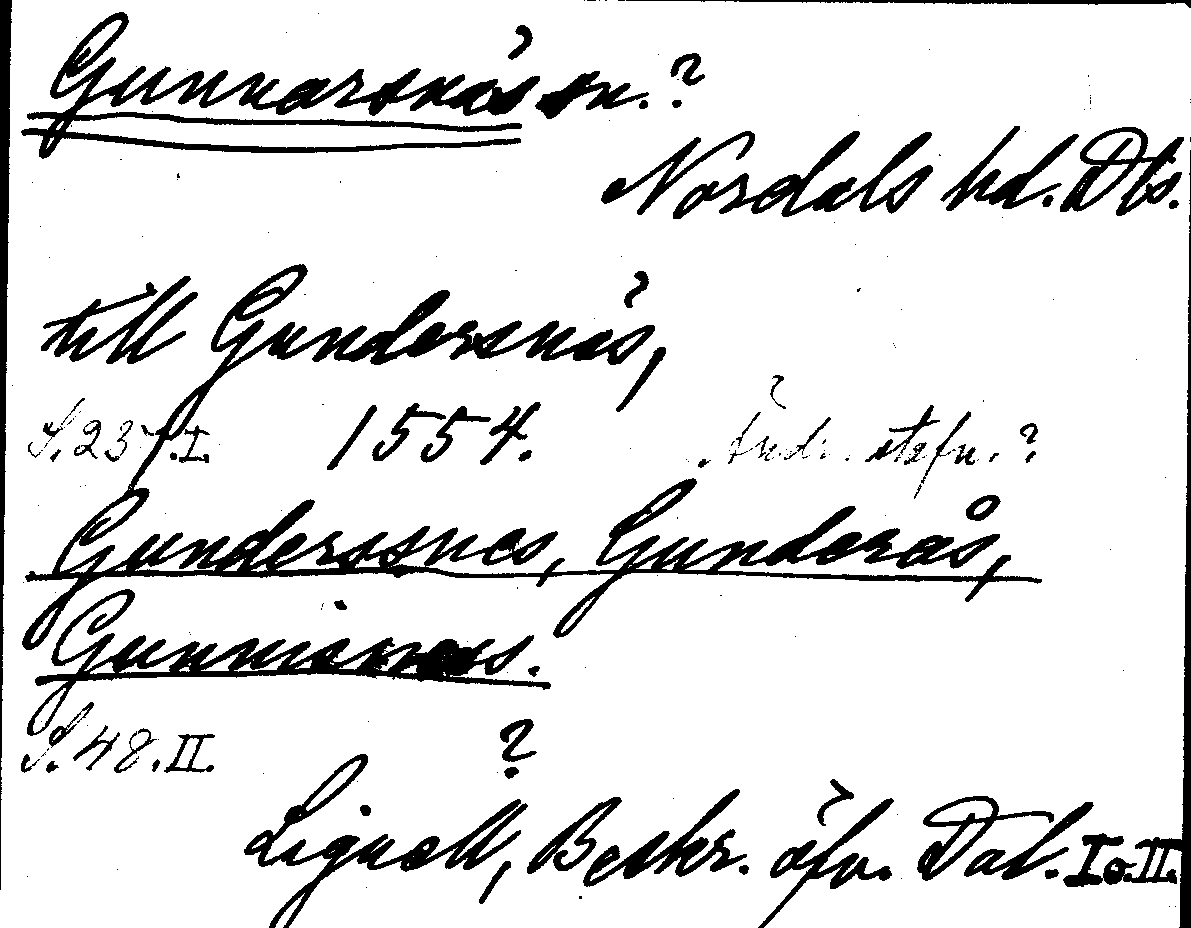 Gunnarsnäs sn.?
Nordals hd. Dls.
till Gundersnäs,
S. 237. I. 1554. Ändr. stafn.?
Gunderssnes, Gunderås,
Gunnisnes.
S. 48. II. ?
Lignell, Beskr. öfv. Dal. I o. II.